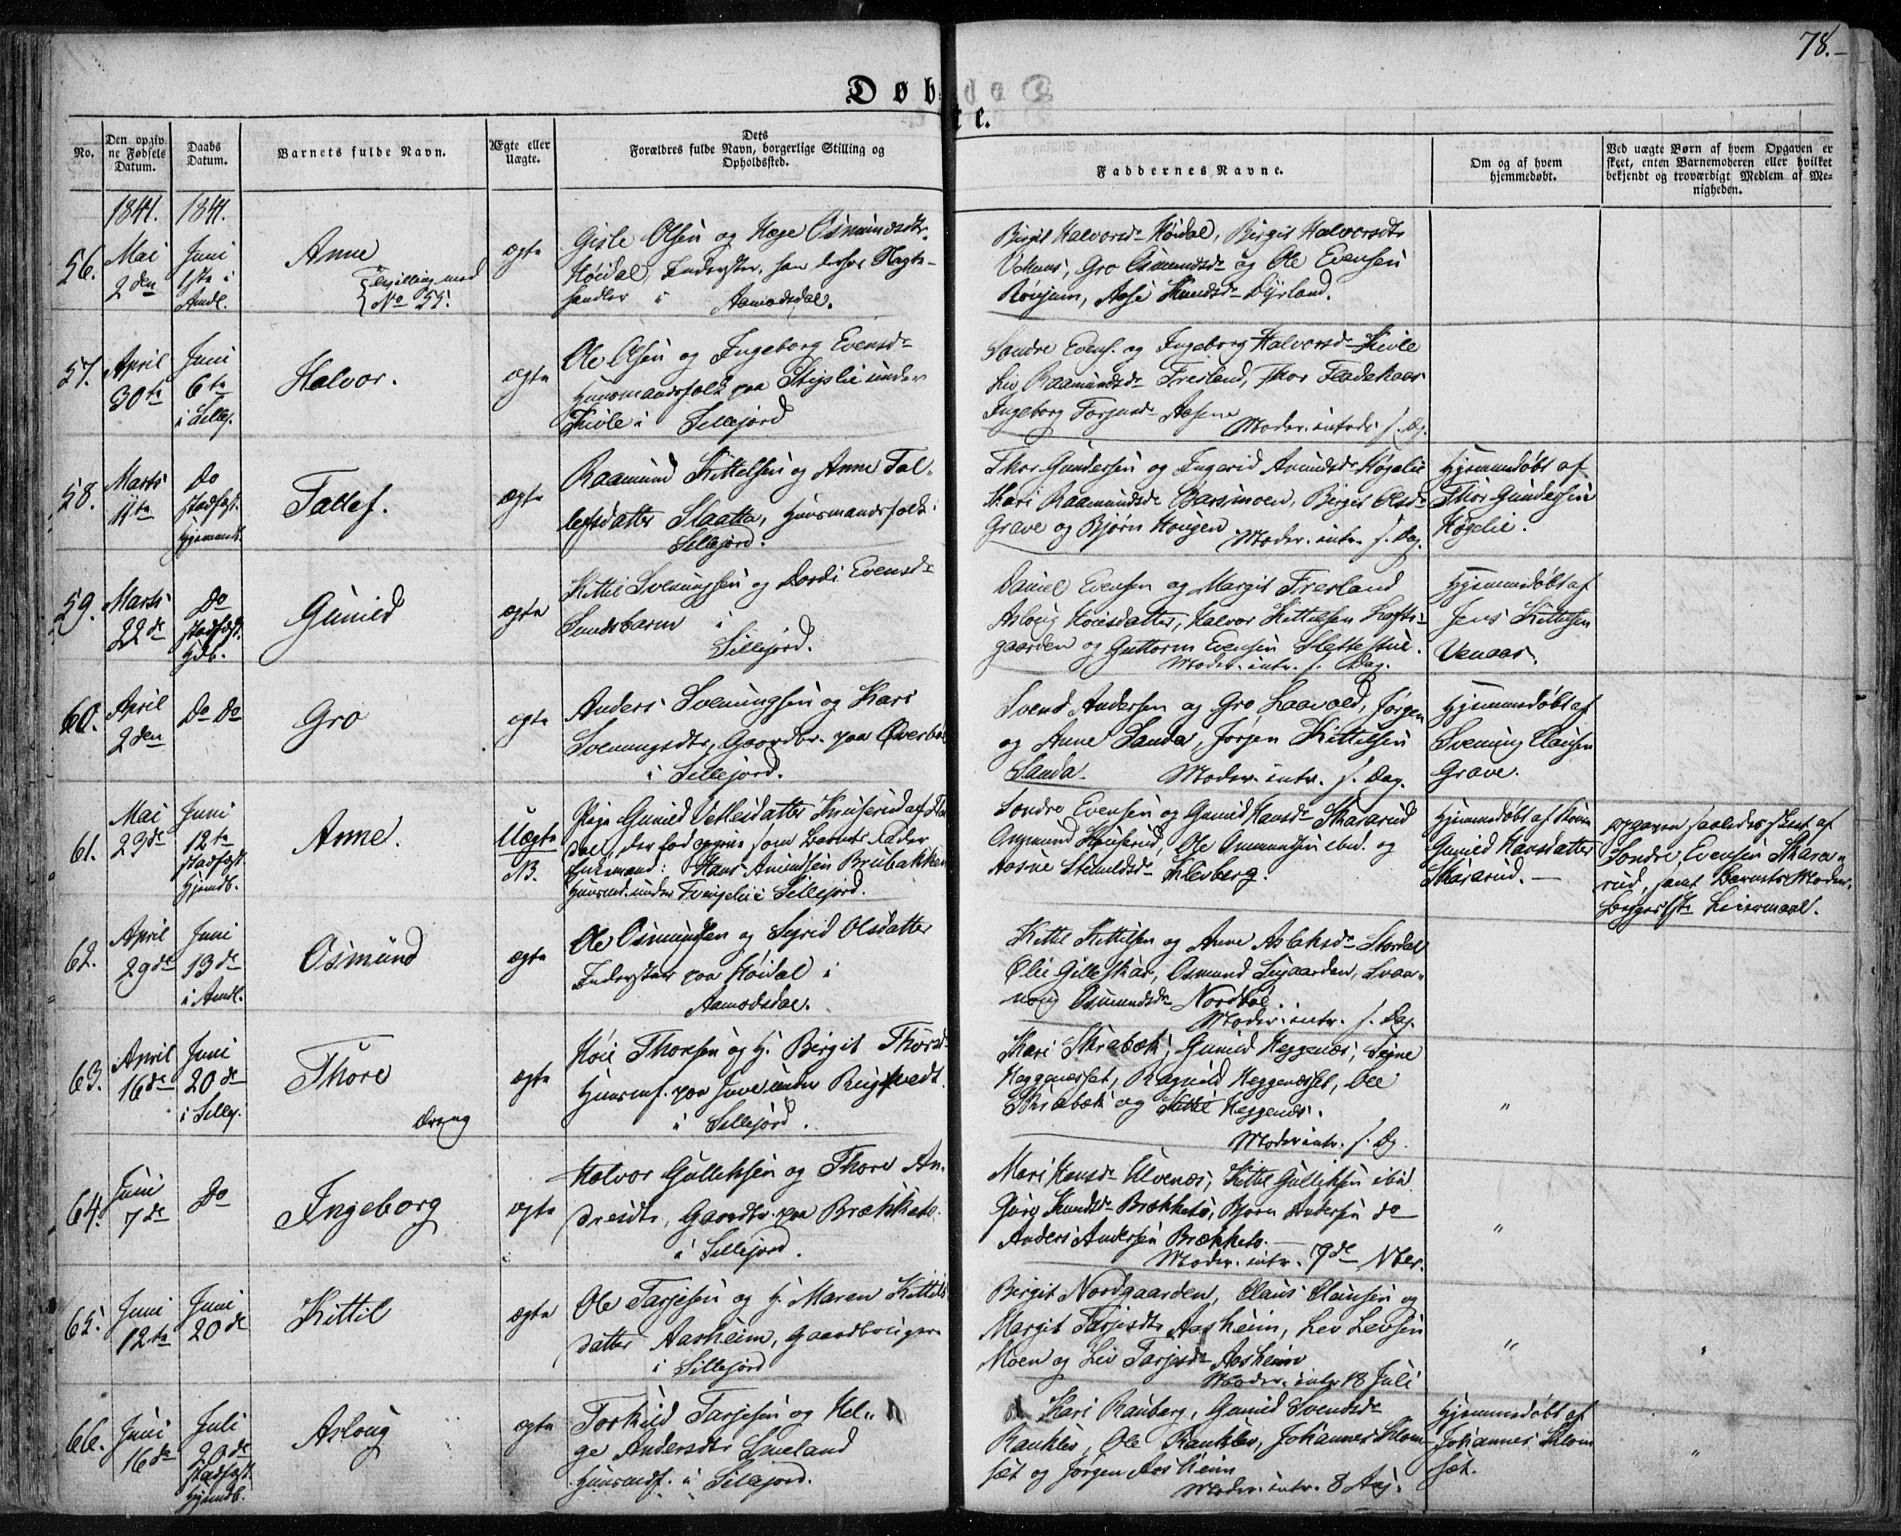 78.-
Døbte.
No.
Den opgiv
ne Fødsels
Datum.
Daabs
Datum.
Barnets fulde Navn.
Ægte eller
Uægte.
Dets
Forældres fulde Navn, borgerlige Stilling og
Opholdssted.
Faddernes Navne.
Om og af hvem
hjemmedøbt.
Ved uægte Børn af hvem Opgaven er
skeet, enten Barnemoderen eller hvilket
bekjendt og troværdigt Medlem af Me-
nigheden.
1841. 1841.
56.
Mai
2den
Juni
1ste i
Amdl.
Anne
Tvilling med
No 55.
ægte
Gisle Olsen og Hæge Osmundsdtr.
Høidal, Inderster,
handler i Aamodsdal.
Birgit Halvorsd. Høidal, Birgit Halvorsdtr
Gro Osmundsd. og Ole Evensen
Rønjum, Aase Knudsd. Dyrland.
57.
April
30te
Juni
6te
i Sillej.
Halvor.
ægte
Ole Olsen og Ingeborg Evensd.
Huusmandsfolk paa under
Kivle i Sillejord
Sondre Evens. og Ingeborg Halvorsd. Kivle
Liv Raamundsd. Frisland, Thor
Ingeborg Aasene
Moder. intrd. s. Dg.
58.
Marts
11te
Do
stadfæst.
hjemmed.
Tallef.
ægte
Raamund Kittelsen og Anne Tal-
lefsdatter Slaatta, Huusmandsfolk i
Sillejord.
Thor Gundersen og Ingerid Amundsd. Høgelie
Kari Raamundsd. Barsmoen, Birgit Olsd.
Grave og Bjørn Hougen
Moder. intr. s. Dag.
Hjemmedøbt af
Thor Gundersen
Høgelie.
59.
Marts
22de
Do
stadfæst.
Hdb.
Gunild
ægte
Kittil Svenungsen og Dordi Evensd.
Sundsbarm i
Sillejord.
Daniel Evensen og Margit Frisland
Asloug Høiesdatter, Halvor Kittelsen Lofts-
gaarden og Guttorm Evensen Slettestue.
Moder. intr. s. Dag.
Hjemmedøbt af
Jens Kittelsen
Venaas.
60.
April
2den
Do Do
Gro
ægte
Anders Svenungsen og Kari
Svenungsdtr, Gaardbr. paa Øverbø
i Sillejord.
Svend Andersen og Gro Laavold, Jørgen
og Anne Sanda, Jørgen Kittelsen
Sanda. Moder. intr. s. Dag.
Hjemmedøbt af
Svenung Clausen
Grave.
61.
Mai
23de
Juni
12te
stadfæst.
Hjemdb.
Anne.
Uægte
NB.
Pige Gunild Vetlesdatter af
dal, der har opgivet som Barnets Fader
Enkemand: Hans Amundsen Brubakken
Huusmd. under i Sillejord.
Sondre Evensen og Gunild Hansd. Skararud
Ole Ammundsen ibid. og
Klevberg.
Hjemmedøbt af Kone
Gunild Hansdatter
Skararud. -
Opgaven saaledes skeet af
Sondre Evensen Skara-
rud, samt Barnets Moder.
begges 1ste Leiermaal.
62.
April
29de
Juni
13de
i Amdl.
Osmund
ægte
Ole Osmundsen og Sigrid Olsdatter
Inderster paa Høidal i
Aamodsdal.
Kittil Kittilsen og Anne Aslaksd. Stordal
Olie Gilleskas, Osmund Sugaarden, Svan-
noug Osmundsd. Nordbøe.
Moder. intr. s. Dag.
63.
April
16de
Juni
20de
i Sillej.
Thore
dreng
ægte
Høie Thoresen og H. Birgit Thorsd.
Huusmf. paa under
i Sillejord.
Kari Skrabæk, Gunild Heggenæs, Signe
Heggenæsset, Ragnild Heggenæsset, Ole
Skrabæk og Kittil Heggenæs.
Moder intr. s. Dg.
"
64.
Juni
7de
Do
Ingeborg
ægte
Halvor Gulliksen og Thore An-
dresdtr, Gaardbr. paa Brækketo.
i Sillejord.
Mari Hansd. Ulvenæs, Kittil Gulliksen ibid
Gurg Knudsd. Brækketo, Bjørn Andersen do
Anders Andersen Brækketo. -
Moder. intr. 7de Nbr.
"
65.
Juni
12te
Juni
20de
Kittil
ægte
Ole Tarjesen og H. Maren Kittils
datter Aasheim, Gaardbrugere
i Sillejord
Birgit Nordgaarden, Claus Clausen og
Margit Tarjesdtr Aasheim, Lev Levsen
Moen og Liv Tarjesd. Aasheim
Moder. intr. 18 Juli
"
66.
Juni
16de
Juli
20de
stadfæst.
Hjemdb.
Aslaug
ægte
Torkild Tarjesen og Hel-
ge Andersdtr Smeland
Huusmdf. i Sillejord.
Kari Rauberg, Gunild Svendsd.
Rauklev, Ole Rauklev, Johannes Klom-
sæt og Jørgen Aasheim
Moder. intr. 8 Aug.
Hjemmedøbt af
Johannes Klom
sæt.
"